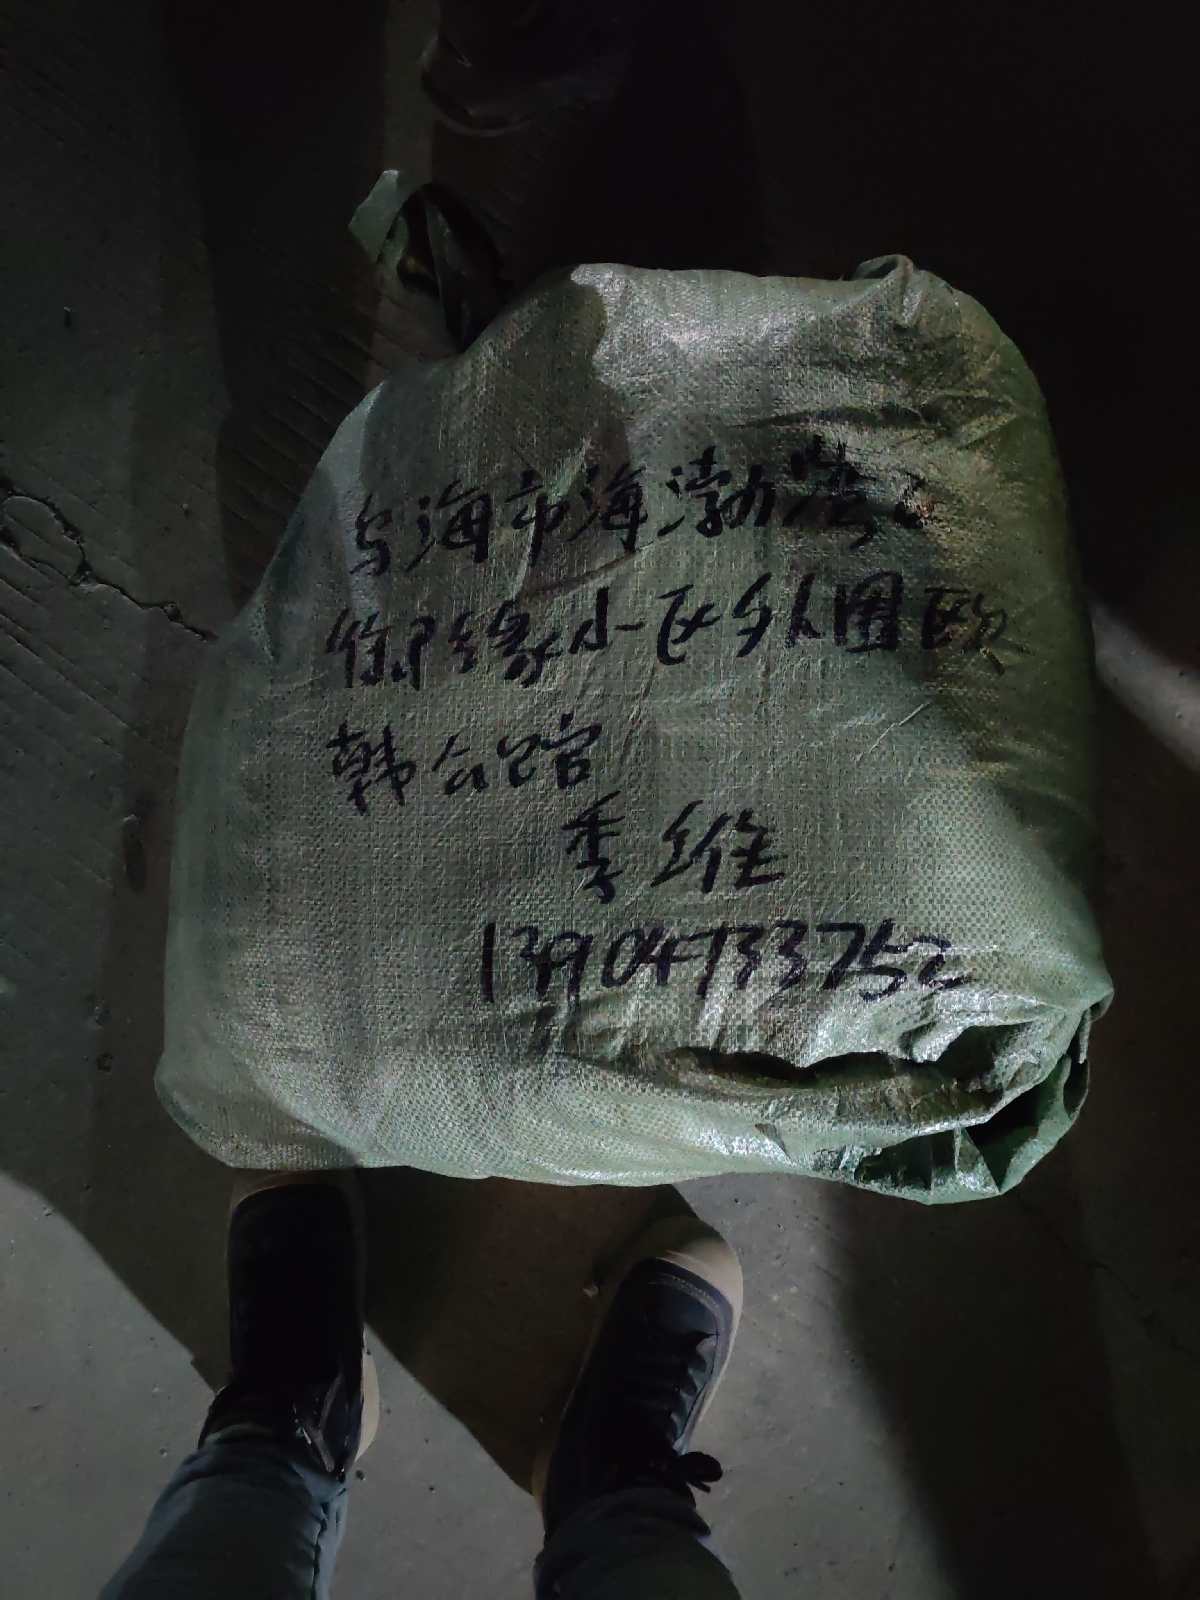 乌海市海渤湾区
御缘小区外围欧
韩会馆
季维
13904733752